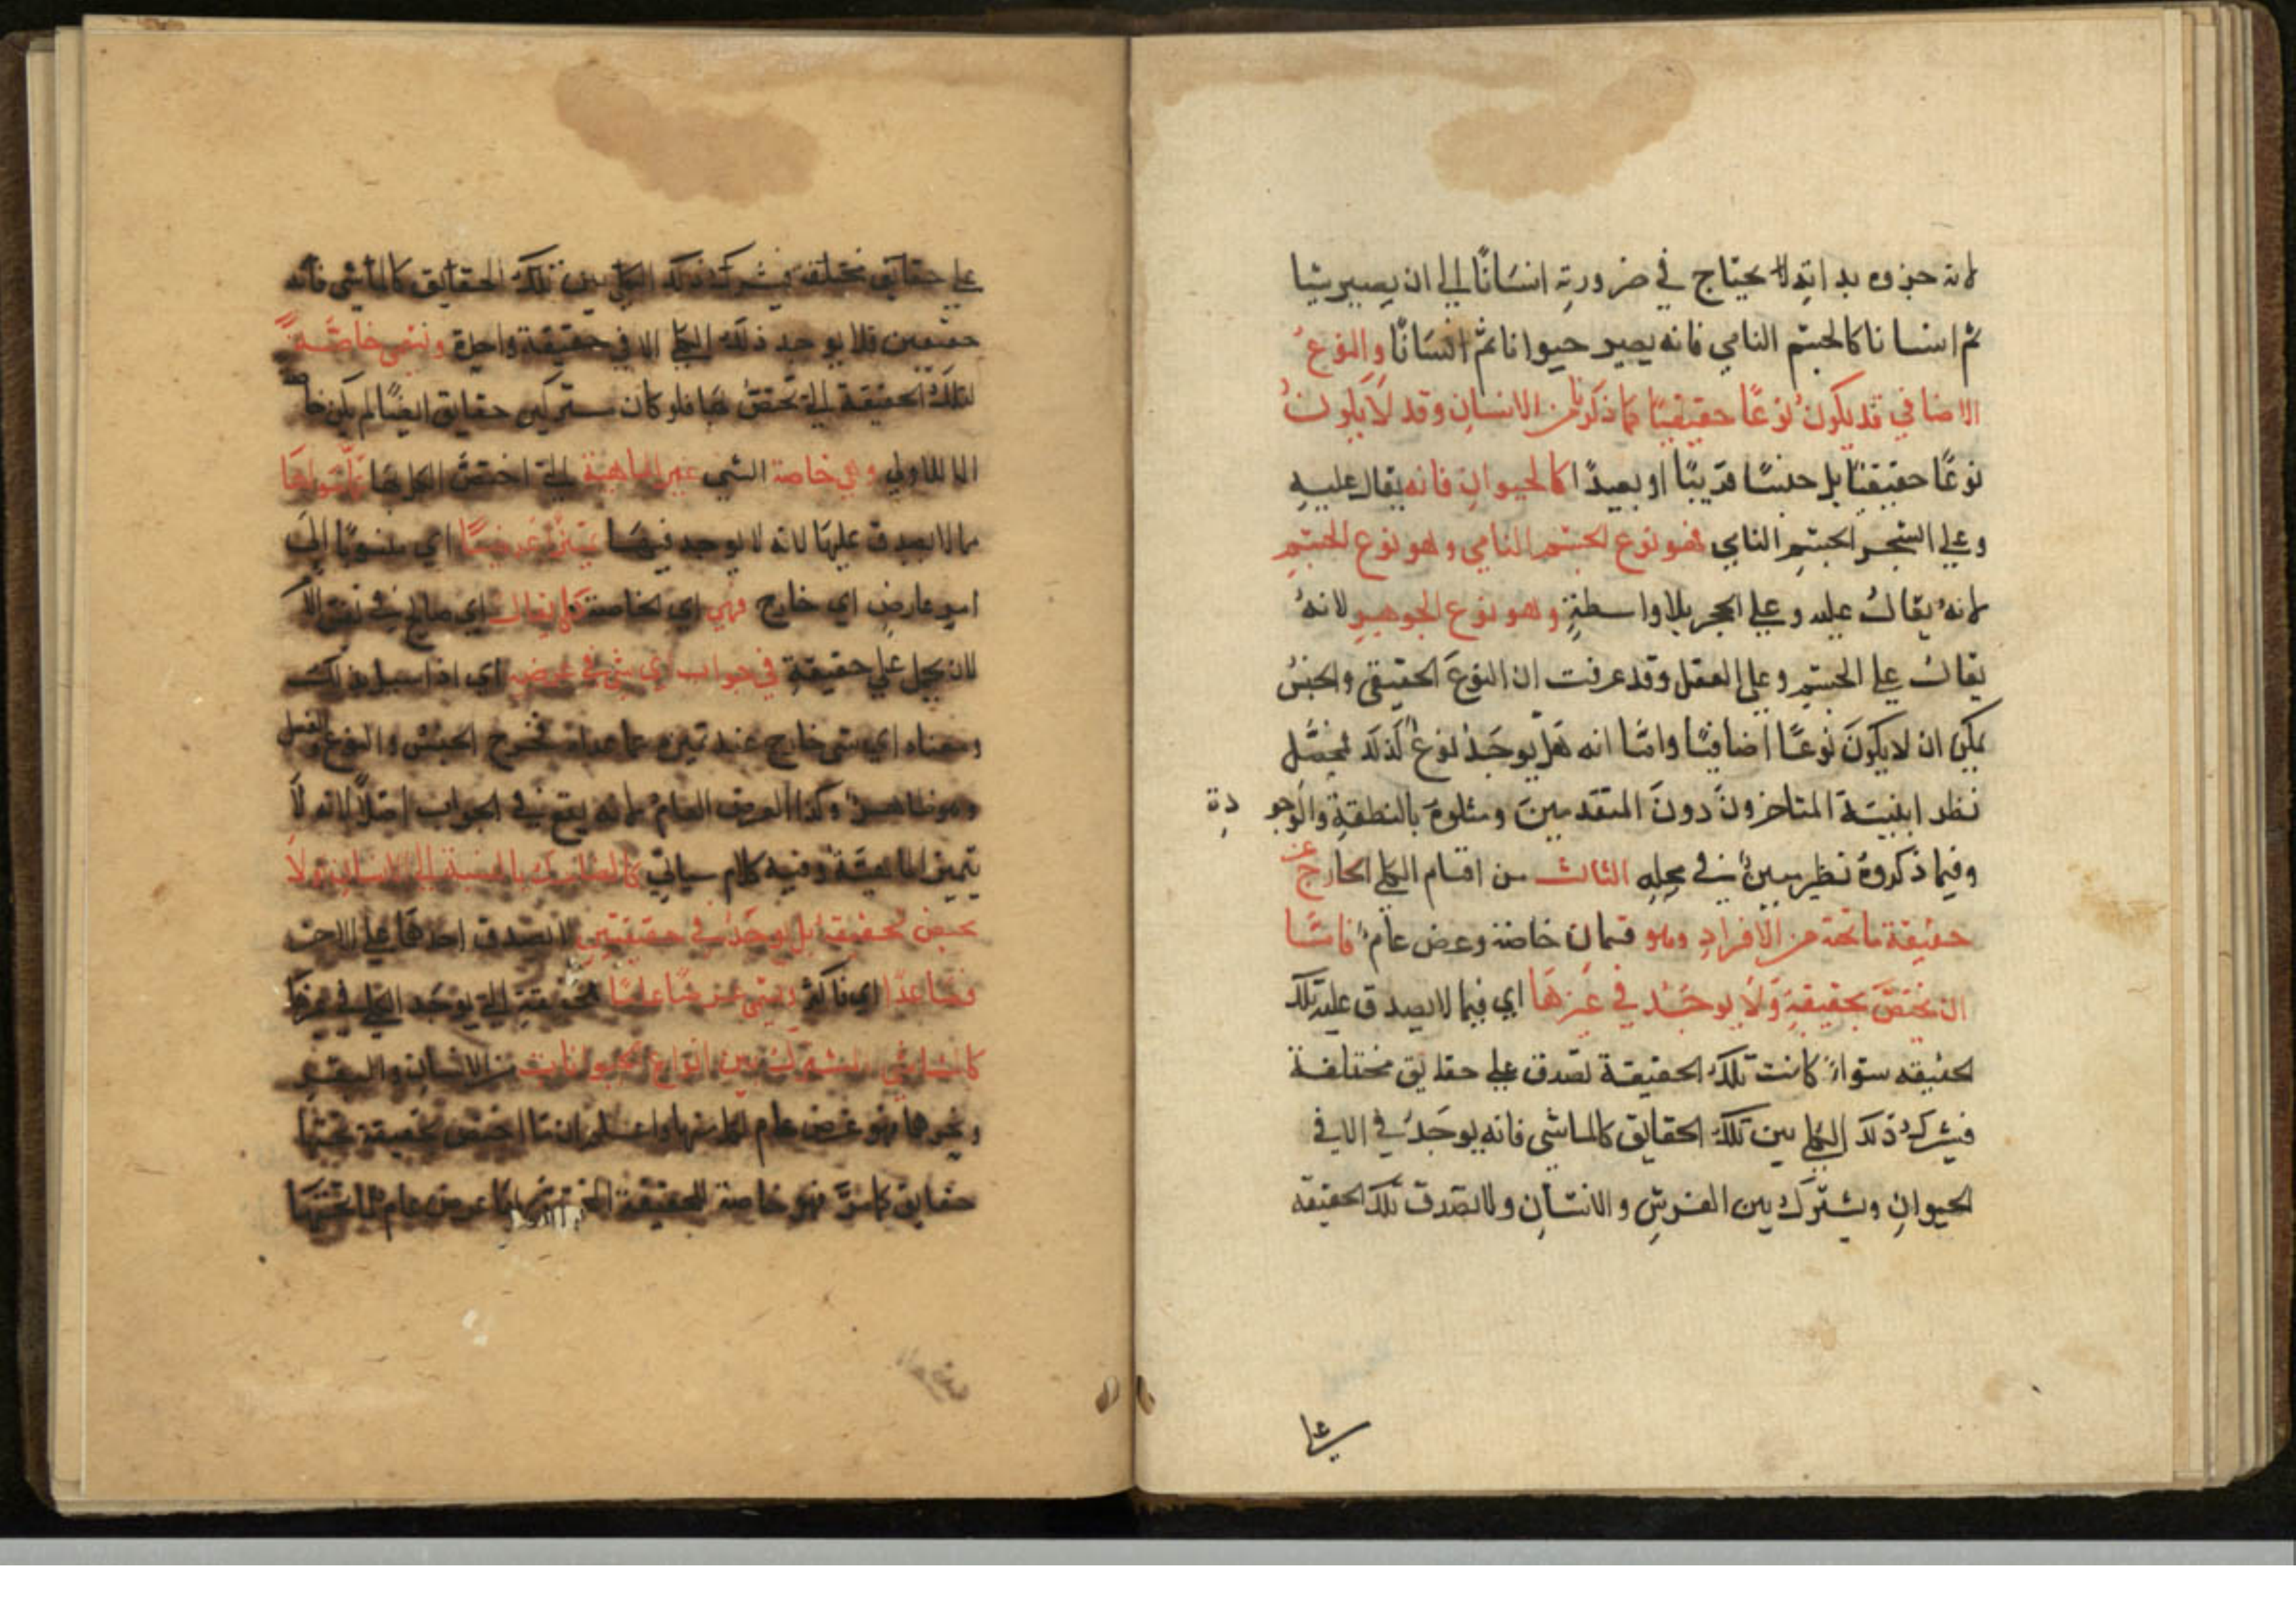 لانه جزوه بذاته لا يحتاج في ضرورته انسانًا الي ان يصير شيا
ثم انسانا كالجسم النامي فانه يصير حيوانا ثم انسانًا والنوعُ
الاضافي قد يكون نوعًا حقيقيًا كما ذكرنا من الانسان وقد لا يكونُ
نوعًا حقيقيًا بل جنسًا قريبًا او بعيدًا كالحيوان فانه يقال عليه
وعلي الشجر الجسم النامي فهو نوع الجسم النامي وهو نوع الجسم
لانهُ يقالُ عليه وعلي الحجر بلا واسطةٍ وهو نوع الجوهر لانهُ
يقالُ علي الجسم وعلي العقل وقد عرفت ان النوعَ الحقيقي والجنسُ
يمكن ان لا يكونَ نوعًا اضافيًا وامّا انه هل يوجَدُ نوعٌ كذلك
نظر المتاخرونَ دونَ المتقدمينَ ومثلوهُ بالنطقةِ والوجو دة
وفيما ذكروهُ نظر يبينُ في محلِه الثالث من اقسام الكلي الخارج عن
حقيقة ما تحته من الافرادِ وهو قسمان خاصة وعرض عامٌ فامّا
ان يختصَّ بحقيقةٍ وَلَا يوجَدُ في غيرهَا اي فيما لا يصدق عليه تلك
الحقيقه سواءٌ كانت تلك الحقيقة تصدق علي حقايق مختلفة
فيشركُ ذلك الكلي بين تلك الحقايق كالماشي فانه يوجَدُ في الا في
الحيوانِ ويشتركُ بين الفرسِ والانسانِ ولا تصدق تلك الحقيقه
علي
علي حقايق مختلفة فيشرك ذلك الكلي بين تلك الحقايق كالماشي فانه
فلا يوجد ذلك الكلي الا في حقيقة واحدة وتسمي خاصّةً
لتلك الحقيقة التي تختصُ بها فلو كان حقايق ايضًا لم يكن
خاصة الشي غير الماهية التي اختصَّ الكلي بها
ما لا يصدق عليها لانه لا يوجد فيها اي منسوبًا الي
امر عارضٍ اي خارج فهي اي الخاصة كلي يقال اي صالح في نفس الا
لان يحمل علي حقيقةٍ في جواب اي شي في عرضه اي اذا سيل
ومعناه اي شي خارج عنه تميزه عما عداه فخرج الجنس والنوع والفصل
وهو ظاهر وكذا العرض العام لانه لا يقع في الجواب اصلًا لانه لا
يميز الماهيّة وفيه كلام سياتي كالضاحك بالنسبة الي الانسان
يختص بحقيقة بل يوجَدُ في حقيقتين لا تصدق احداهما علي الاخري
فصاعدًا اي فاكثر ويسمي عرضًا عامًا للحقيقة التي يوجَد الكلي في غيرها
كالماشي المشترك بين انواع الحيوانات من الانسان والبقر
وغيرها فهو عرض عام لكل منها واعلم ان ما اختص بحقيقة تحتها
حقايق كما مرَّ فهو خاصة للحقيقة عرض عام لما تحتها